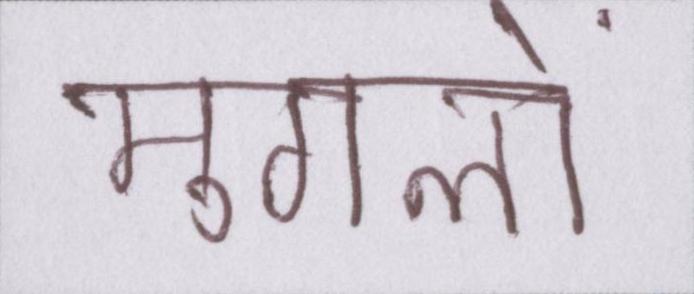 मुगलों